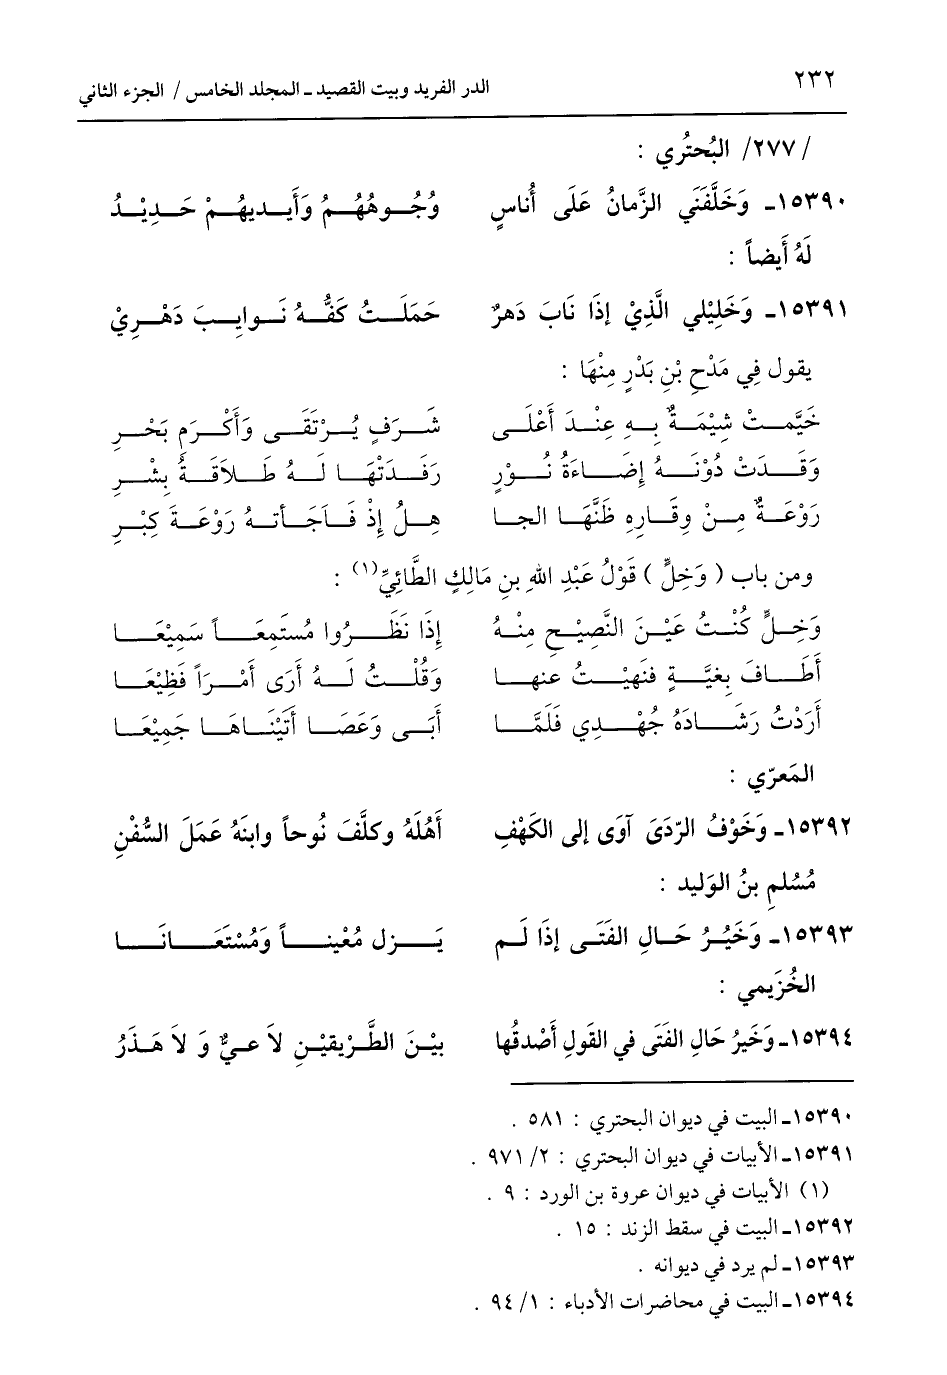 ٢٣٢
الدر الفريد وبيت القصيد - المجلد الخامس / الجزء الثاني
/٢٧٧/ البُحتُري :
١٥٣٩٠- وَخَلَّفَني الزَّمانُ عَلَى أُناسٍ وُجُوهُهُمُ وَأَيديهُمْ حَدِيْدُ
لَهُ أَيضاً :
١٥٣٩١- وَخَلِيْلي الَّذِيْ إذَا نَابَ دَهرٌ حَمَلَتْ كَفُّهُ نَوايِبَ دَهْرِيْ
يقول فِي مَدْحِ بْنِ بَدْرٍ مِنْهَا :
خَيَّمَتْ شِيْمَةٌ بِهِ عِنْدَ أَعْلَى شَرَفٍ يُرْتَقَى وَأَكْرَمِ بَحْرِ
وَقَدَتْ دُوْنَهُ إضَاءَةُ نُوْرٍ رَفَدَتْهَا لَهُ طَلاَقَةُ بِشْرِ
رَوْعَةٌ مِنْ وِقَارِهِ ظَنَّهَا الجا هِلُ إذْ فَاجَأتهُ رَوْعَةَ كِبْرِ
ومن باب ( وَخِلٍّ ) قَوْلُ عَبْدِ اللهِ بنِ مَالِكٍ الطَّائِيِّ(١) :
وَخِلٍّ كُنْتُ عَيْنَ النَّصِيْحِ مِنْهُ إذَا نَظَرُوا مُستَمِعَاً سَمِيْعَا
أَطَافَ بِغيَّةٍ فنَهيْتُ عنها وَقُلْتُ لَهُ أرَى أَمْرَاً فَظِيْعَا
أَرَدْتُ رَشَادَهُ جُهْدِي فَلَمَّا أَبَى وَعَصَا أَتَيْنَاهَا جَمِيْعَا
المَعرّي :
١٥٣٩٢- وَخَوْفُ الرّدَىَ آوَى إلى الكَهْفِ أَهْلَهُ وكلَّفَ نُوحاً وابنَهُ عَمَلَ السُّفْنِ
مُسْلمِ بنُ الوَليد :
١٥٣٩٣- وَخَيْرُ حَالِ الفَتَى إذَا لَم يَزل مُعْيناً وَمُسْتَعَانَا
الخُزَيمي :
١٥٣٩٤- وَخَيرُ حَالِ الفَتَى في القَولِ أَصْدقُها بيْنَ الطَّرِيقيْنِ لاَ عيٌّ وَ لاَ هَذَرُ
١٥٣٩٠- البيت في ديوان البحتري : ٥٨١ .
١٥٣٩١- الأبيات في ديوان البحتري : ٢/ ٩٧١ .
(١) الأبيات في ديوان عروة بن الورد : ٩ .
١٥٣٩٢- البيت في سقط الزند : ١٥ .
١٥٣٩٣- لم يرد في ديوانه .
١٥٣٩٤- البيت في محاضرات الأدباء : ١/ ٩٤ .